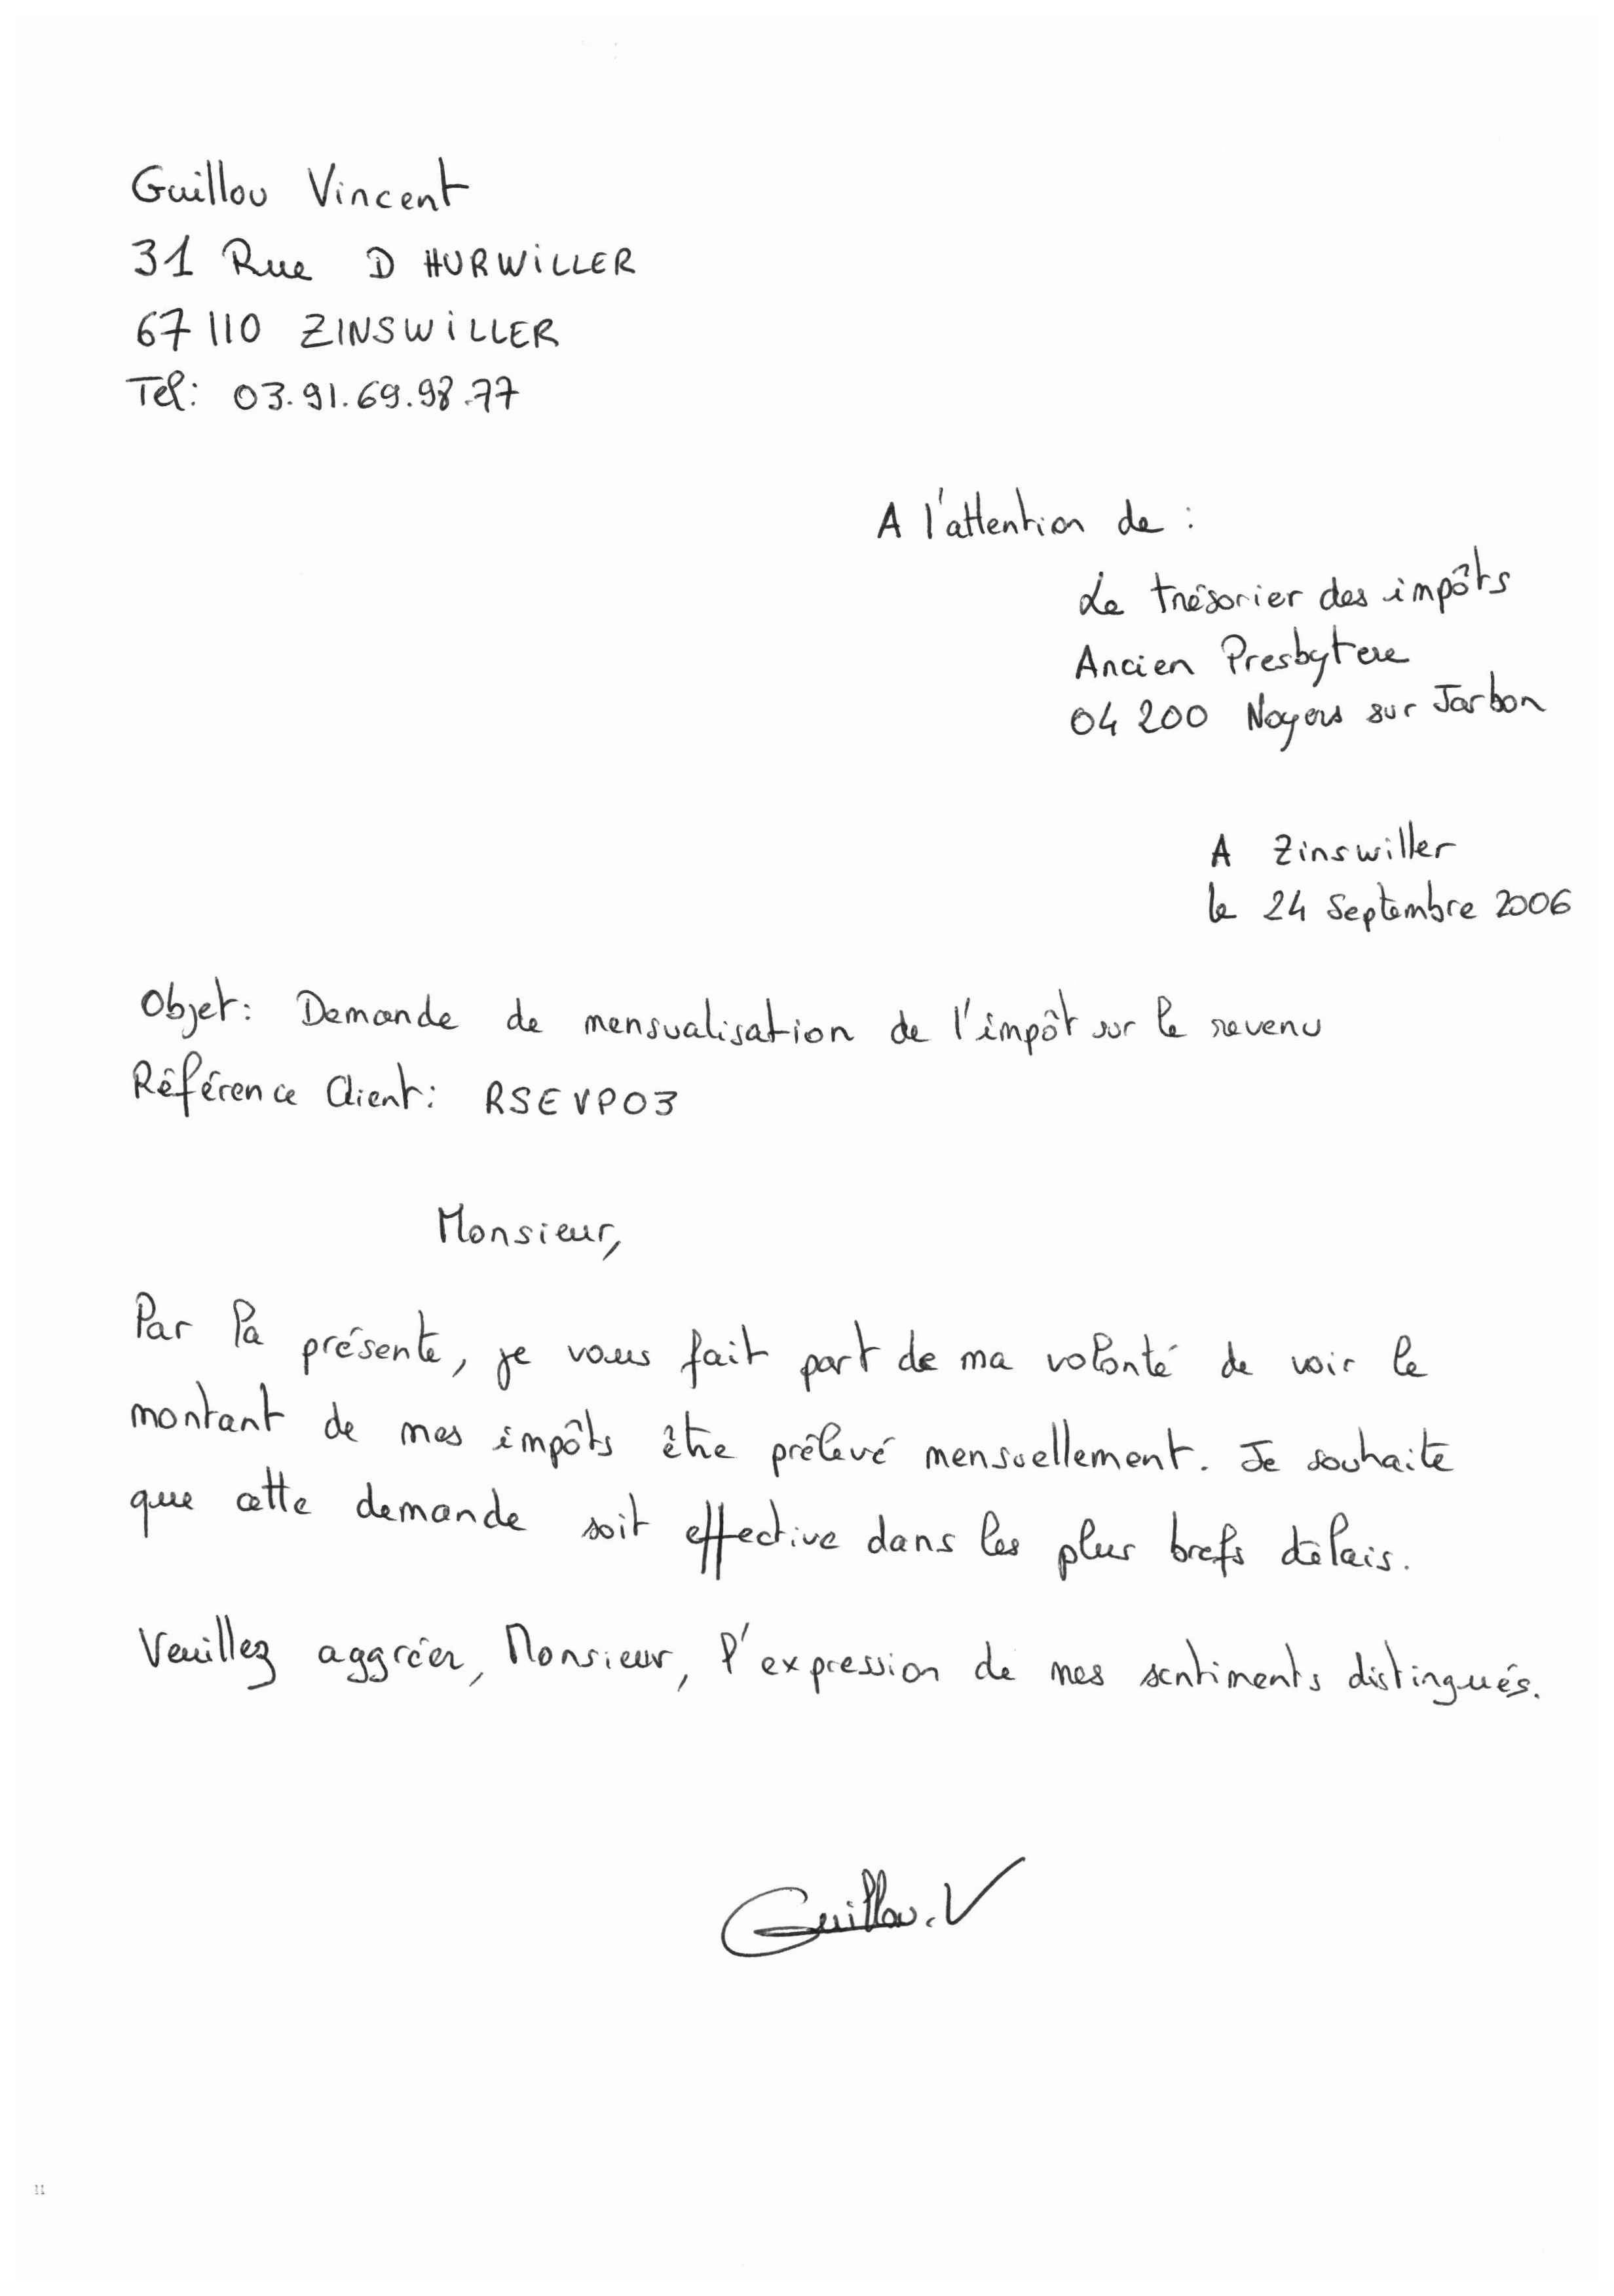 Guillou Vincent
31 Rue D HURWiLLER
67110 ZINSWiLLER
Tel: 03.91.69.98.77
A l'attention de :
Le trésorier des impôts
Ancien Presbytere
04 200 Noyers sur Jarbon
A Zinswiller
le 24 Septembre 2006
Objet: Demande de mensualisation de l'impôt sur le revenu
Référence Client: RSEVP03
Monsieur,
Par la présente, je vous fait part de ma volonté de voir le
montant de mes impôts être prélevé mensuellement. Je souhaite
que cette demande soit effective dans les plus brefs délais.
Veuillez aggréer, Monsieur, l'expression de mes sentiments distingués.
Guillou.V
11